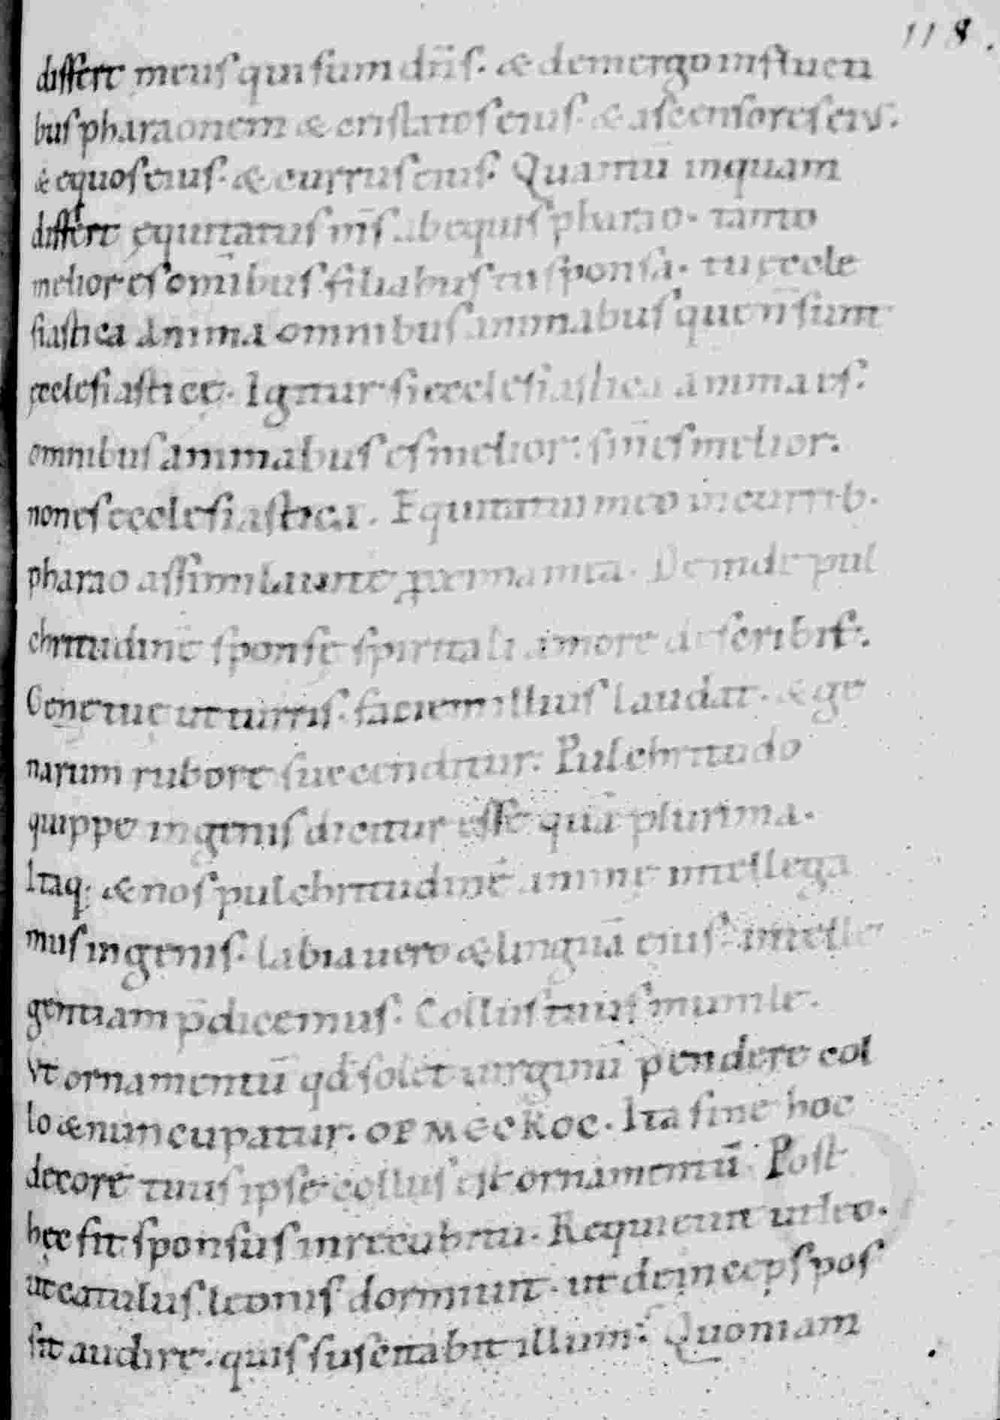 118.
differt meus qui sum dn̄s. & demergo influcti
bus pharaonem & enslatos eius. & ascensores eius.
& equos eius. & currus eius. Quantū inquam
differt ęquitatus m̄s ab equis pharao. tanto
melior es om̄ibus filiabus tu sponsa. tu ęccle
siastica anima omnibus animabus que n̄ sunt
ęcclesiasticę. Igitur si ecclesiastica anima es.
omnibus animabus es melior. si n̄ es melior.
non es ecclesiastica. Equitatui meo in currib.
pharao assimilaui te ꝓxima mea. Deinde pul
chritudinē sponsę spiritali amore describit.
Genę tuę ut turris. faciem illius laudat. & ge
narum rubore succenditur. Pulchritudo
quippe in genis dicitur esse quā plurima.
Itaq; & nos pulchritudinē animę intellega
mus in genis. labia uero & linguā eius intelle
gentiam p̄dicemus. Collus tuus monile.
Vt ornamentū qđ solet uirginū pendere col
lo & nuncupatur. ΟΡΜΕCΚΟC. Ita sine hoc
decore tuus ipse collus est ornamentū. Post
hęc fit sponsus in recubitu. Requieuit ut leo.
ut catulus leonis dormiuit. ut deinceps pos
sit audire. quis suscitabit illum. Quoniam